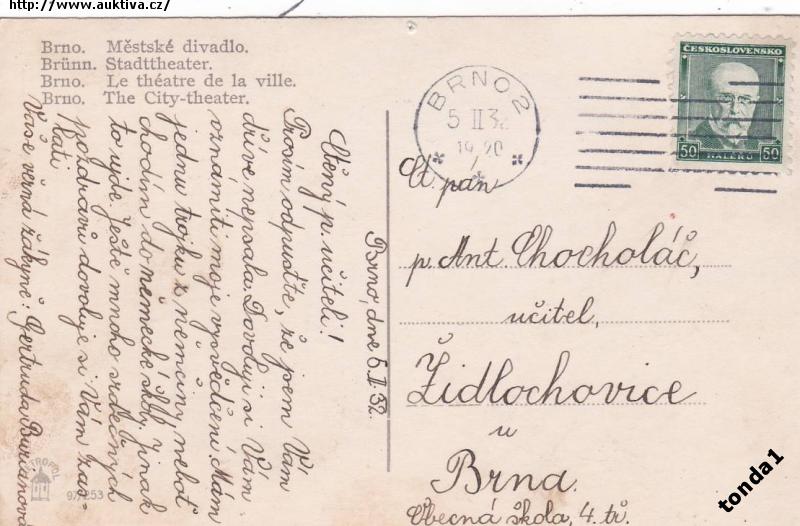 http://www.auktiva.cz/
Brno. Městské divadlo.
Brünn. Stadttheater.
Brno. Le théatre de la ville.
Brno. The City-theater.
BRNO 2
5 II 32
19 20
ČESKOSLOVENSKO
50 HALÉŘŮ 50
Brno, dne 5. II. 32.
Ctěný p. učiteli!
Prosím odpusťte, že jsem Vám
dříve nepsala. Dovoluji si Vám
oznámiti moje vysvědčení. Mám
jednu trojku z němčiny, neboť
chodím do německé školy. Jinak
to ujde. Ještě mnoho srdečných
pozdravů dovoluje si Vám zas-
lati
Vaše věrná žákyně: Gertruda Buriánová
Ct. pan
p. Ant. Chocholáč,
učitel,
Židlochovice
u
Brna.
Obecná škola, 4. tř.
METROPOL
97/253
tonda1